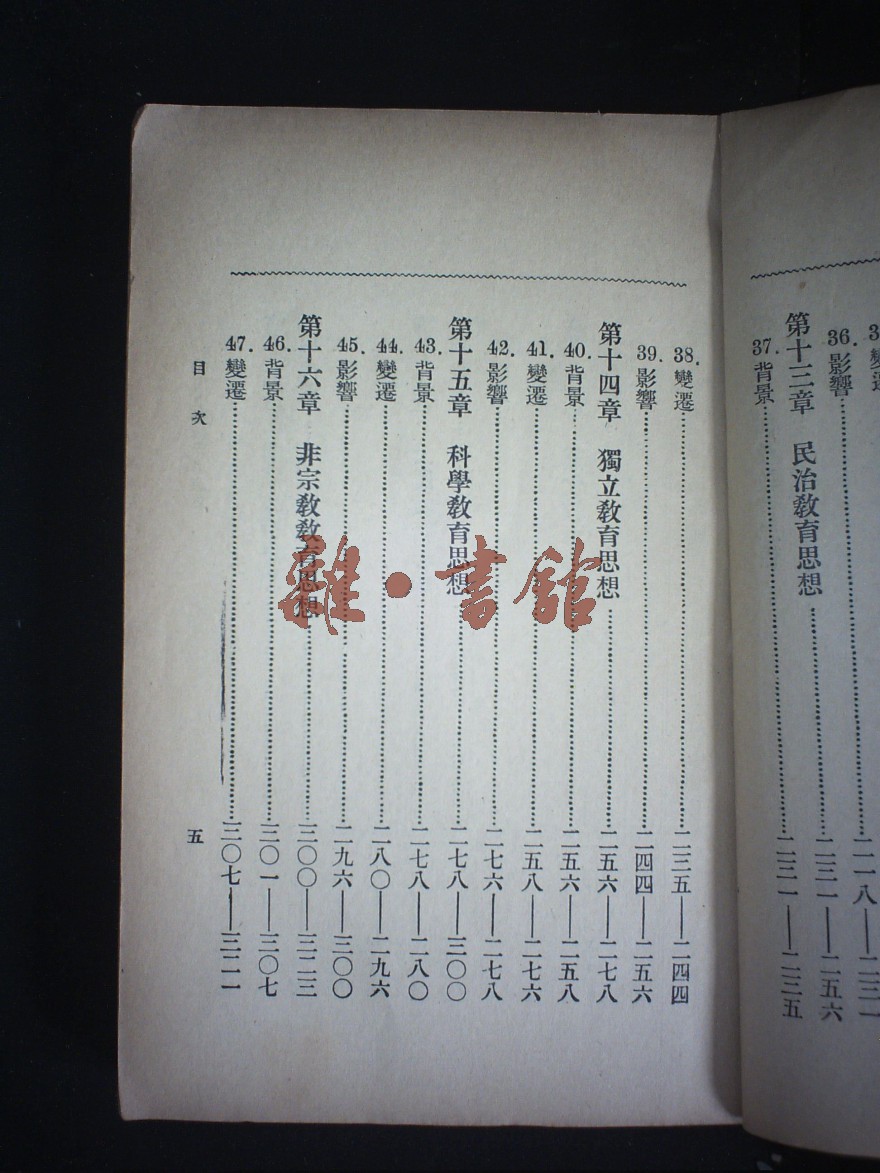 影響……二一八——二三一
第十三章　民治敎育思想……二三一——二五六
37. 背景……二三一——二三五
38. 變遷……二三五——二四四
39. 影響……二四四——二五六
第十四章　獨立敎育思想……二五六——二七八
40. 背景……二五六——二五八
41. 變遷……二五八——二七六
42. 影響……二七六——二七八
第十五章　科學敎育思想……二七八——三〇〇
43. 背景……二七八——二八〇
44. 變遷……二八〇——二九六
45. 影響……二九六——三〇〇
第十六章　非宗敎敎育思想……三〇〇——三二三
46. 背景……三〇一——三〇七
47. 變遷……三〇七——三二一
目次
五
雜·書館